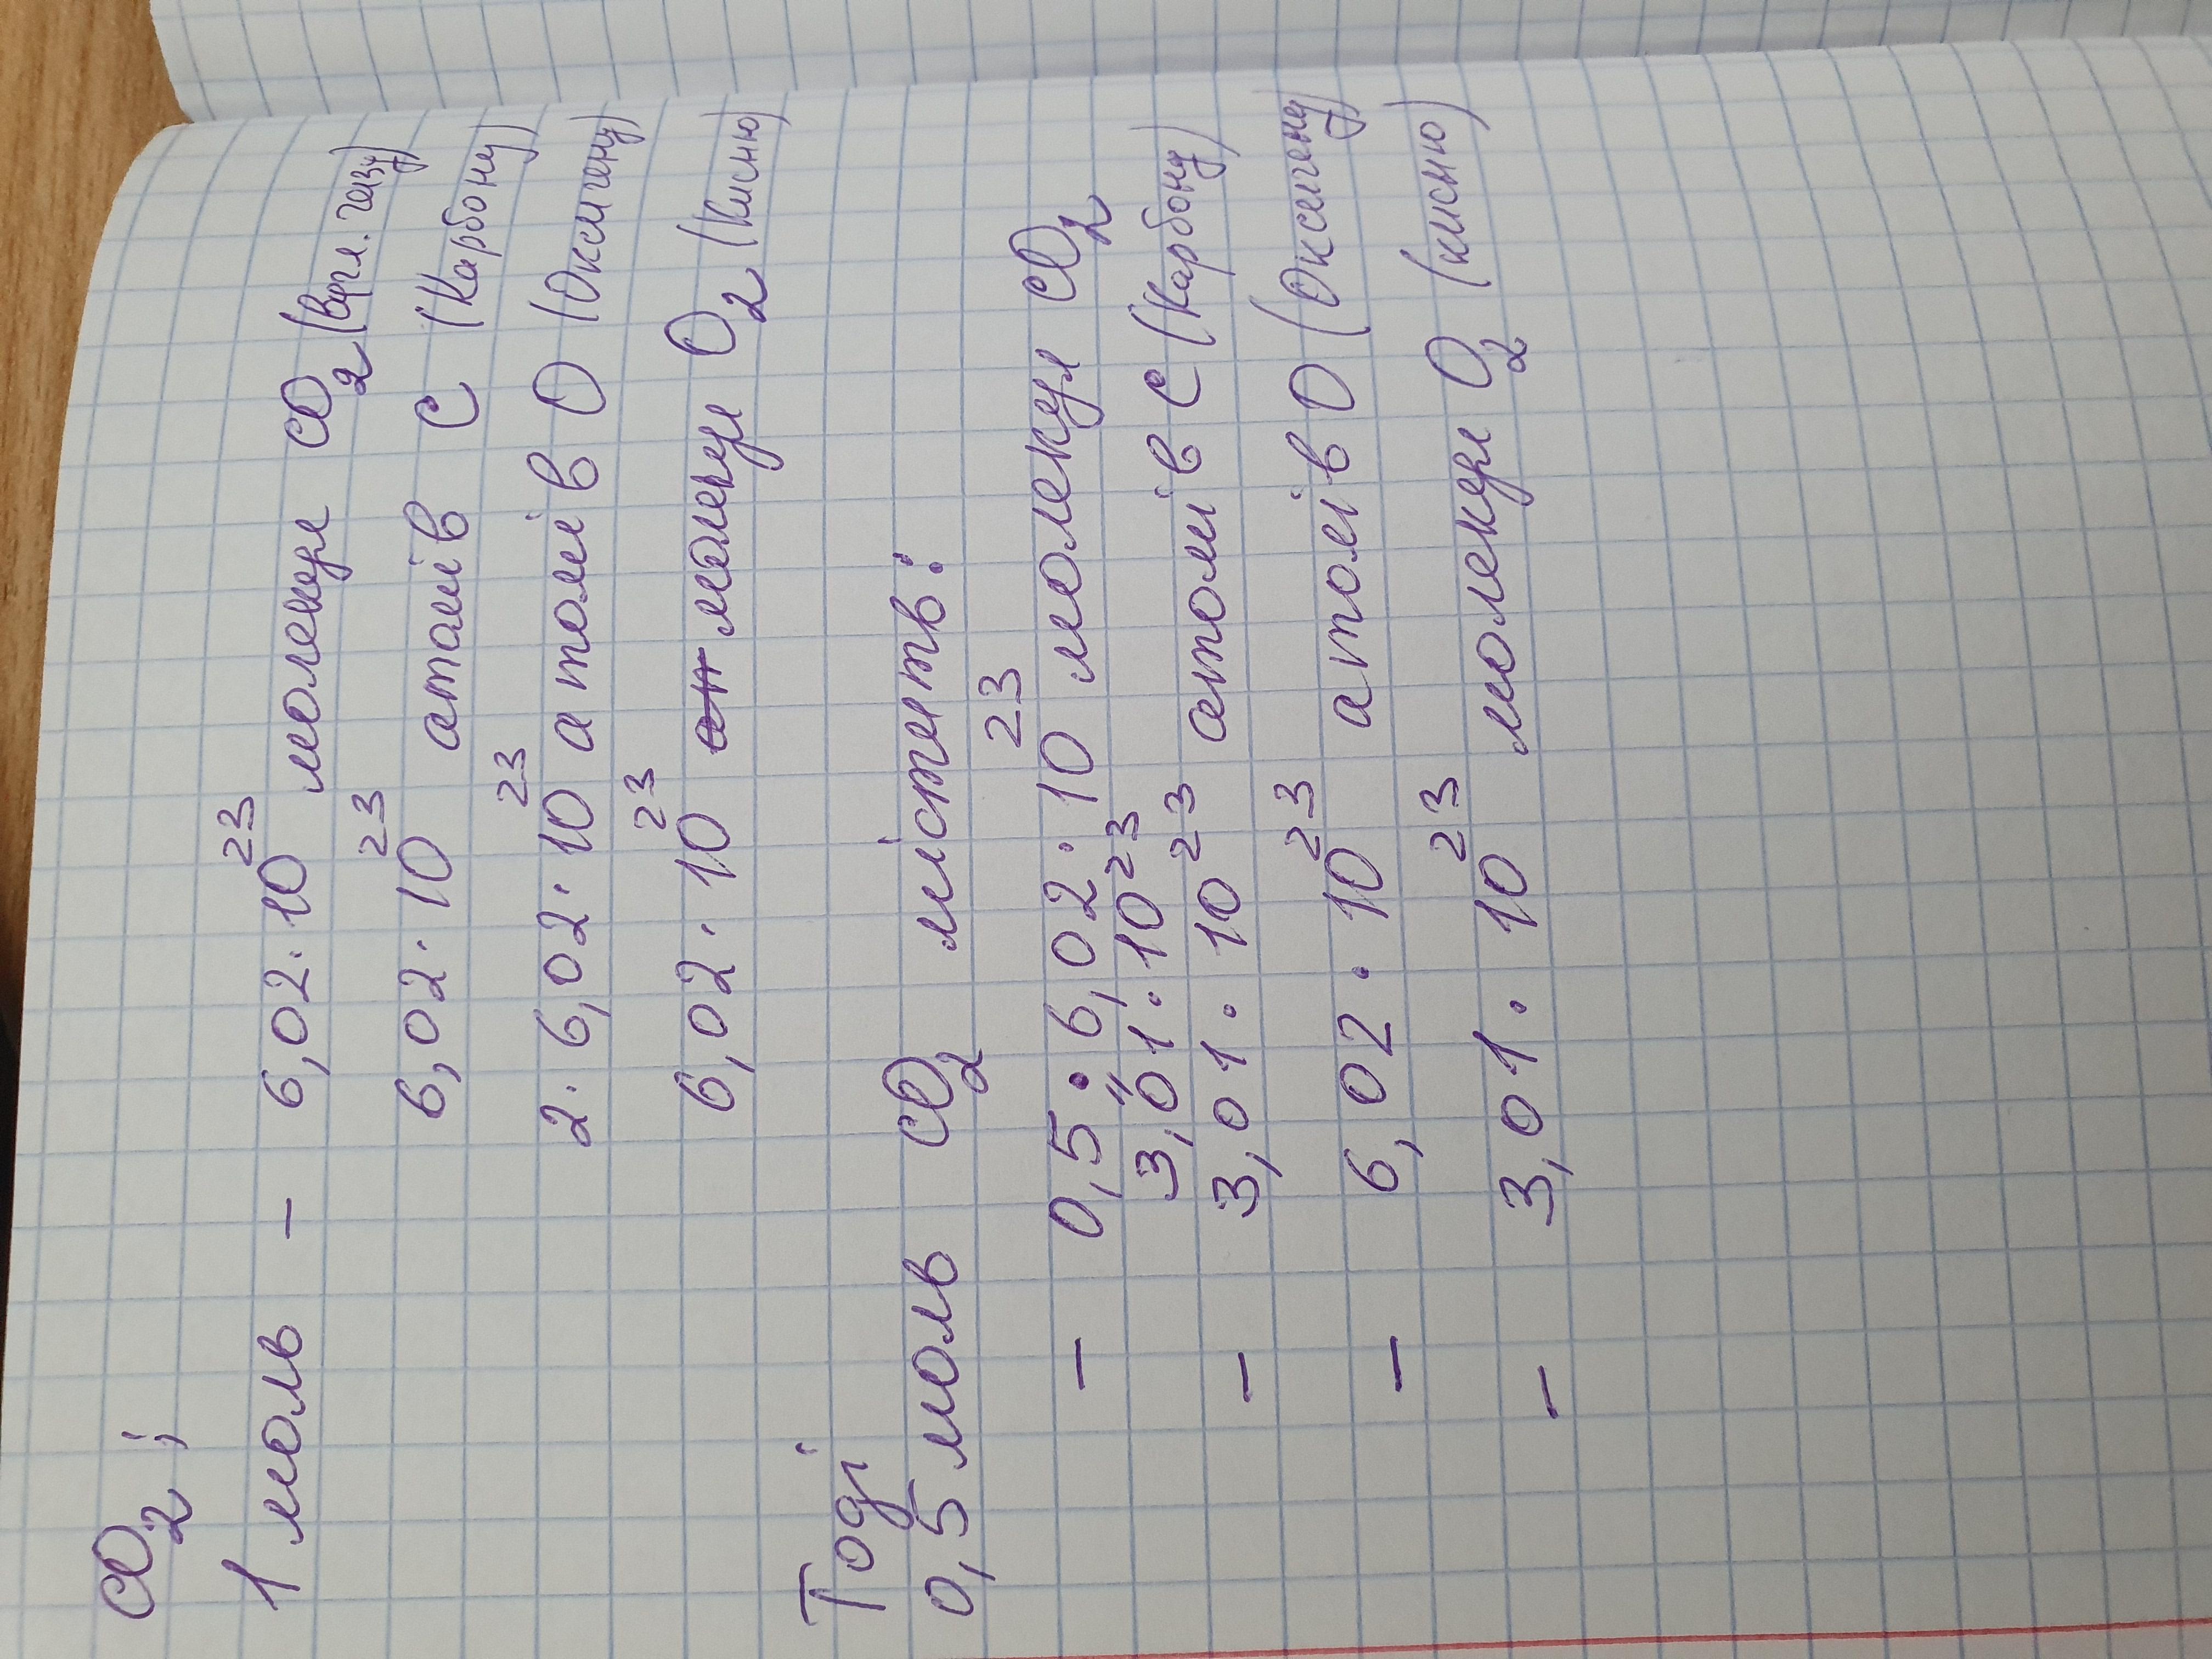 CO₂;
1 моль – 6,02·10²³ молекул CO₂ (вугл. газу)
6,02·10²³ атомів C (Карбону)
2·6,02·10²³ атомів O (Оксигену)
6,02·10²³ молекул O₂ (кисню)
Тоді
0,5 моль CO₂ містить:
– 0,5·6,02·10²³ молекул CO₂
"
3,01·10²³
– 3,01·10²³ атомів C (Карбону)
– 6,02·10²³ атомів O (Оксигену)
– 3,01·10²³ молекул O₂ (кисню)